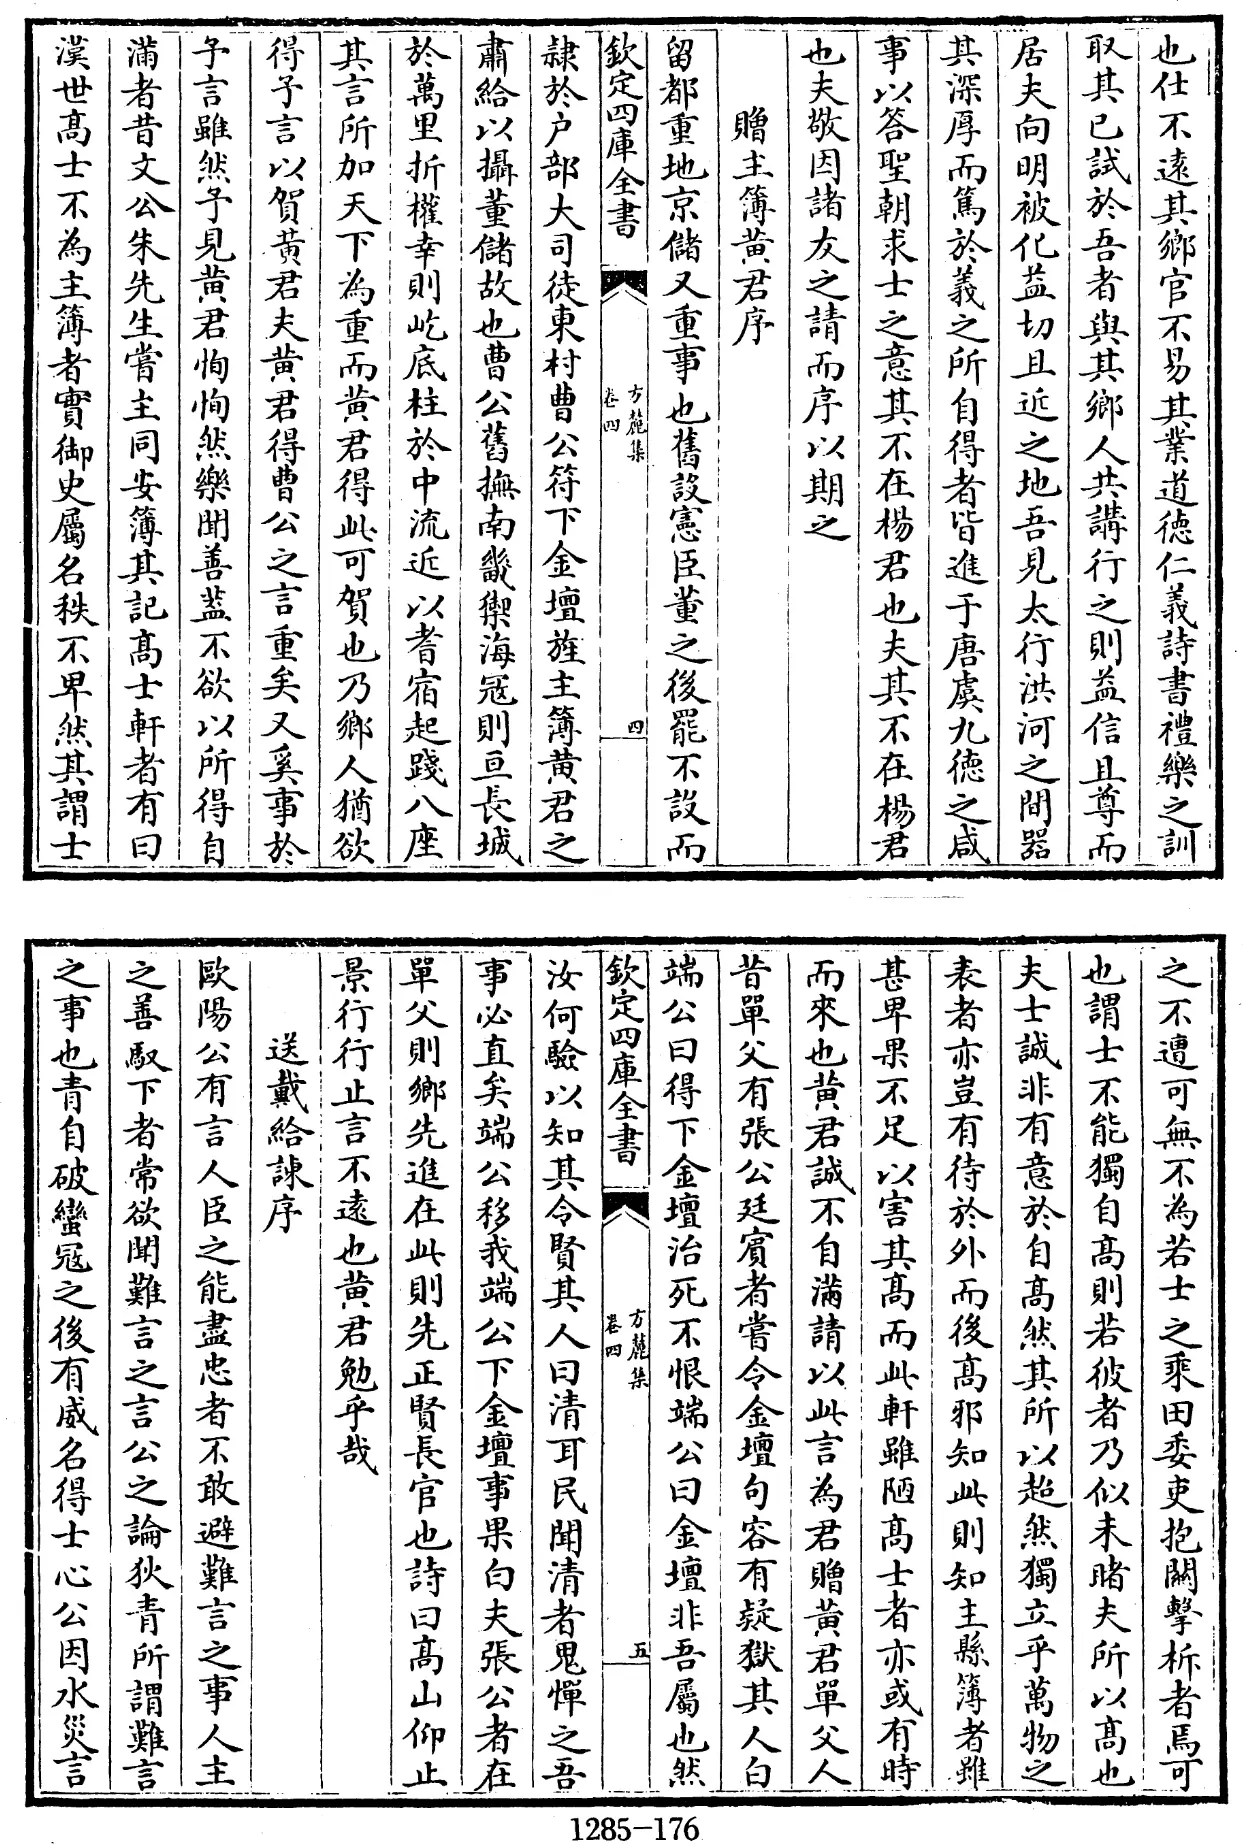 也仕不遠其鄉官不易其業道徳仁義詩書禮樂之訓
取其已試於吾者與其鄉人共講行之則益信且尊而
居夫向明被化益切且近之地吾見太行洪河之間器
其深厚而篤於義之所自得者皆進于唐虞九徳之咸
事以答聖朝求士之意其不在楊君也夫其不在楊君
也夫敬因諸友之請而序以期之
贈主簿黄君序
留都重地京儲又重事也舊設憲臣董之後罷不設而
欽定四庫全書
方麓集
卷四
四
隷於户部大司徒東村曹公符下金壇旌主簿黄君之
肅給以攝董儲故也曹公舊撫南畿禦海冦則亘長城
於萬里折權幸則屹底柱於中流近以耆宿起踐八座
其言所加天下為重而黄君得此可賀也乃鄉人猶欲
得予言以賀黄君夫黄君得曹公之言重矣又奚事於
予言雖然予見黄君恂恂然樂聞善葢不欲以所得自
滿者昔文公朱先生嘗主同安簿其記髙士軒者有曰
漢世髙士不為主簿者實御史屬名秩不卑然其謂士
之不遭可無不為若士之乘田委吏抱關擊柝者焉可
也謂士不能獨自髙則若彼者乃似未睹夫所以髙也
夫士誠非有意於自髙然其所以超然獨立乎萬物之
表者亦豈有待於外而後髙邪知此則知主縣簿者雖
甚卑果不足以害其髙而此軒雖陋髙士者亦或有時
而來也黄君誠不自滿請以此言為君贈黄君單父人
昔單父有張公廷賔者嘗令金壇句容有疑獄其人白
端公曰得下金壇治死不恨端公曰金壇非吾屬也然
欽定四庫全書
方麓集
卷四
五
汝何驗以知其令賢其人曰清耳民聞清者鬼憚之吾
事必直矣端公移我端公下金壇事果白夫張公者在
單父則鄉先進在此則先正賢長官也詩曰髙山仰止
景行行止言不遠也黄君勉乎哉
送戴給諫序
歐陽公有言人臣之能盡忠者不敢避難言之事人主
之善馭下者常欲聞難言之言公之論狄青所謂難言
之事也青自破蠻冦之後有威名得士心公因水災言
1285-176